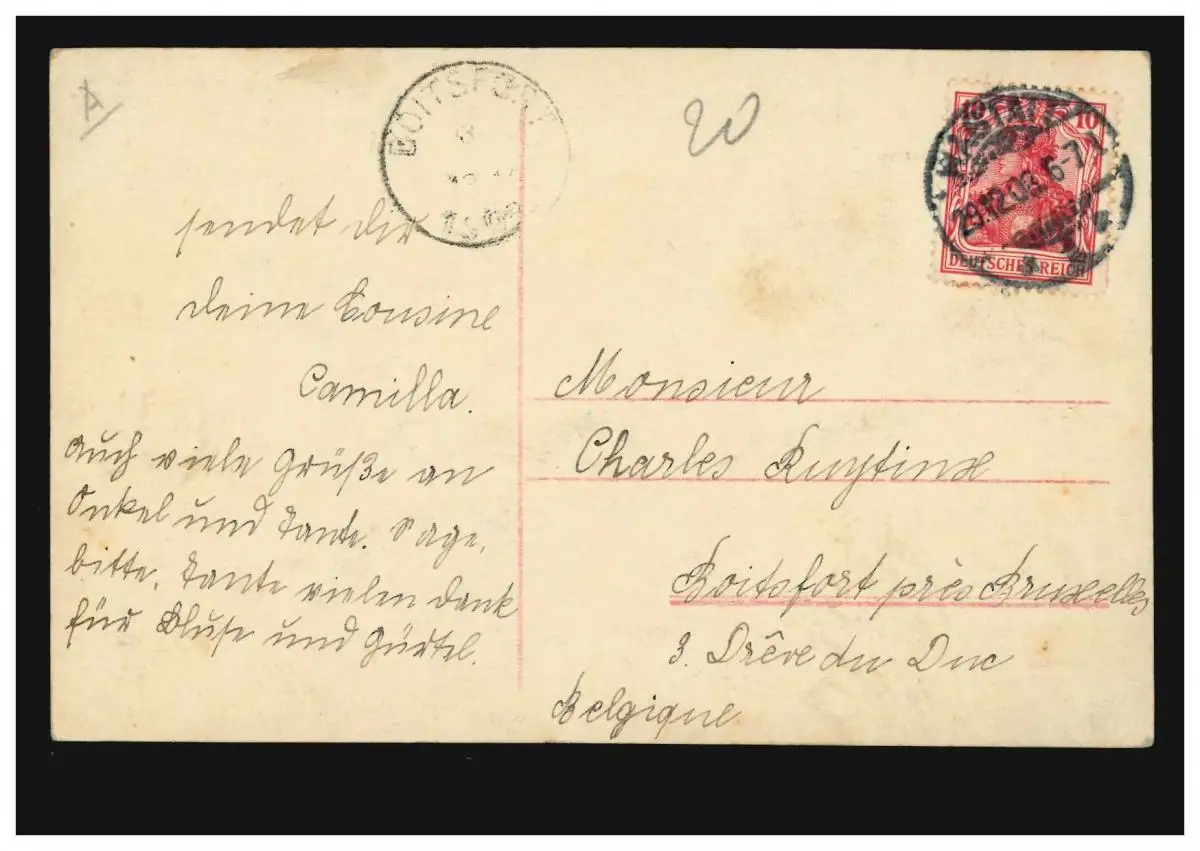 A
BOITSFORT
20
10 10
RASTATT
29.12.09. 6-7
DEUTSCHES REICH
sendet dir
deine Cousine
Camilla.
Auch viele Grüße an
Onkel und Tante. Sage,
bitte, Tante vielen Dank
für Bluse und Gürtel.
Monsieur
Charles Ruytinx
Boitsfort près Bruxelles
3. Drêve du Duc
Belgique